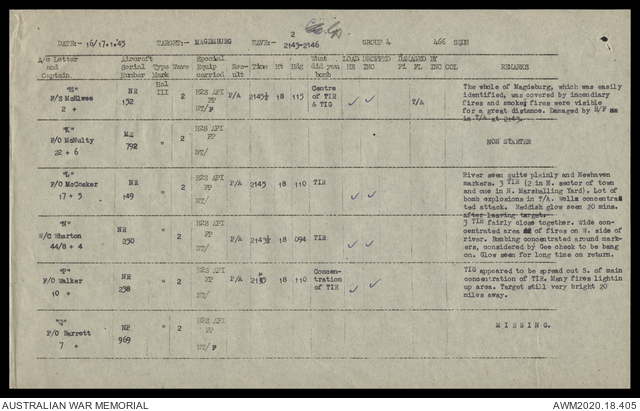 2
DATE:- 16/17.1.45 TARGET:- MAGDEBURG WAVE:- 2143-2146 GROUP 4 466 SQDN
A/C Letter and Captain Aircraft Serial Number Type Mark Wave Special Equip carried Result Time Ht Hdg What did you bomb LOAD DROPPED HE INC DAMAGED BY Fi FL INC COL REMARKS
Hal III
"H" F/S McElwee 2 + NR 152 2 H2S API FP NT/F P/A 2145½ 18 115 Centre of TIR & TIG T/A
The whole of Magdeburg, which was easily
identified, was covered by incendiary
fires and smoke; fires were visible
for a great distance. Damaged by H/F
in T/A at 2145.
"K" F/O McNulty 22 + 6 MZ 792 " 2 H2S API FP NT/ NON STARTER
"L" P/O McCosker 17 + 5 NR 149 " 2 H2S API FP NT/ P/A 2145 18 110 TIR
River seen quite plainly and Newhaven
markers. 3 TIR (2 in N. sector of town
and one in N. Marshalling Yard). Lot of
bomb explosions in T/A. Well concentra-
ted attack. Reddish glow seen 20 mins.
after leaving target.
"N" W/C Wharton 44/8 + 4 NR 250 " 2 H2S API FP NT/ P/A 2145½ 18 094 TIR
3 TIR fairly close together. Wide con-
centrated area of fires on W. side of
river. Bombing concentrated around mark-
ers, considered by Gee check to be bang
on. Glow seen for long time on return.
"P" F/O Walker 10 + NR 238 " 2 H2S API FP NT/ P/A 18 110 Concen-
tration
of TIR
TIG appeared to be spread out S. of main
concentration of TIR. Many fires lightin
up area. Target still very bright 20
miles away.
F/O Barrett 7 + NP 969 " 2 H2S API FP NT/F MISSING.
AUSTRALIAN WAR MEMORIAL AWM2020.18.405